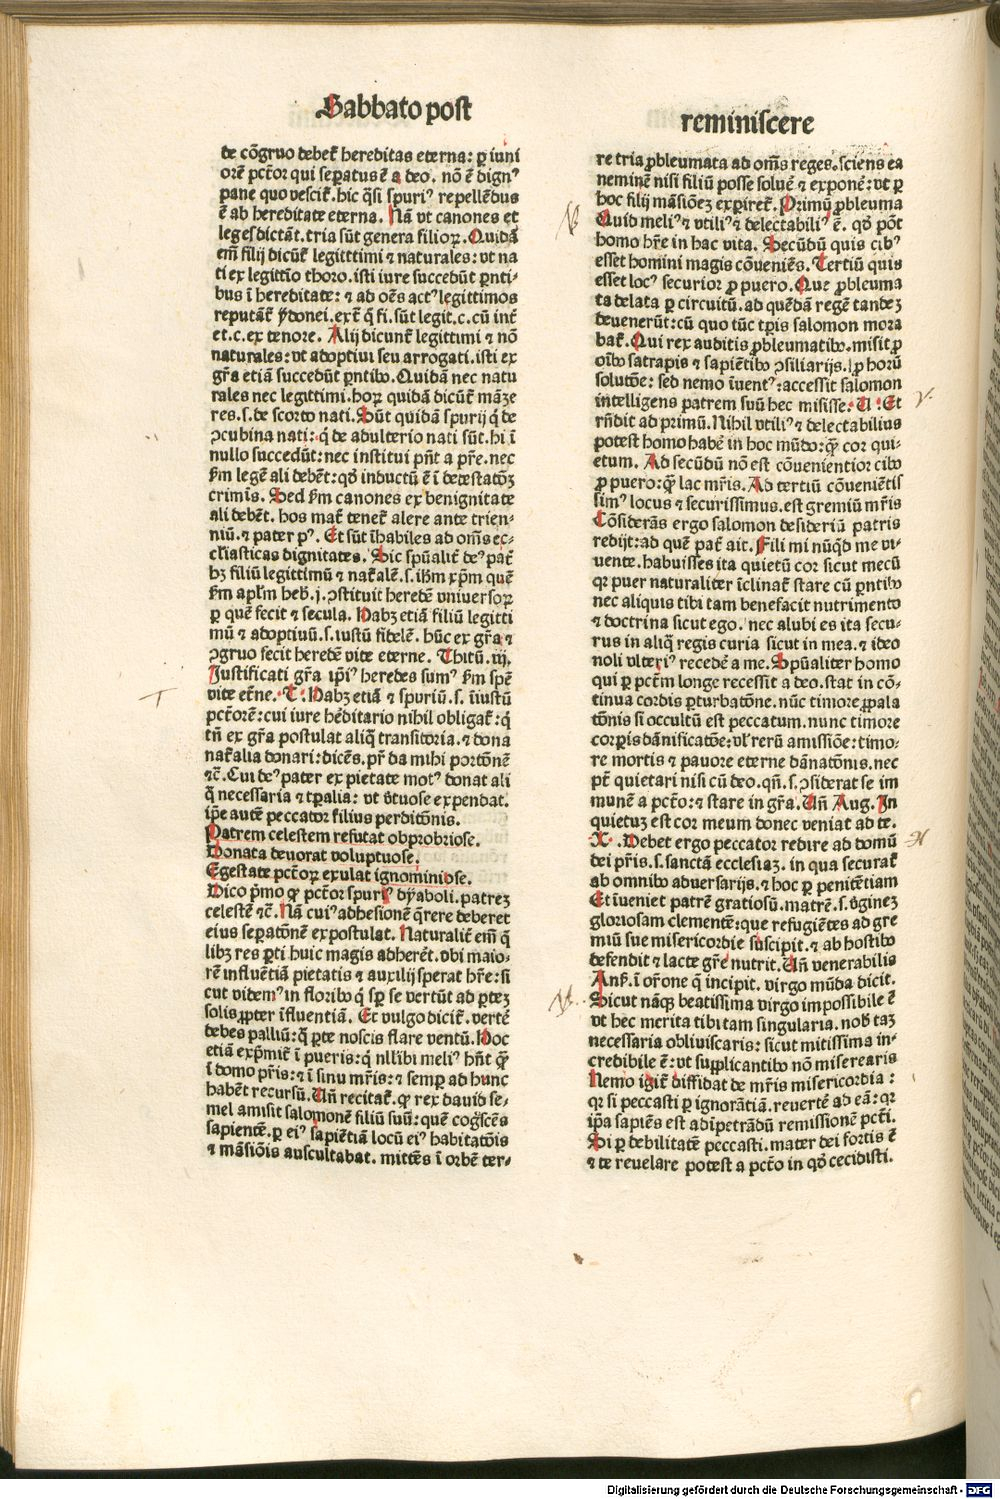 Sabbato post
reminiscere
de cōgruo debet̄ hereditas eterna: ꝑ iuni
orē pctōr qui seꝑatus ē a deo. nō ē dignꝰ
pane quo vescit̄. hic q̄si spuriꝰ repellēdus
ē ab hereditate eterna. Nā vt canones et
leges dictāt. tria sūt genera filioꝝ. Quidā
em̄ filij dicūt̄ legitttimi ⁊ naturales: vt na
ti ex legittīo thoro. isti iure succedūt ꝑnti-
bus ī hereditate: ⁊ ad oēs actꝰ legittimos
reputāt̄ ydonei. ext̄ q̄ fi. sūt legit. c. cū int̄
et. c. ex tenore. Alij dicunt̄ legittimi ⁊ nō
naturales: vt adoptiui seu arrogati. isti ex
gr̄a etiā succedūt ꝑntibꝰ. Quidā nec natu
rales nec legittimi. hoꝝ quidā dicūt̄ māze
res. s. de scorto nati. Sūt quidā spurij q̄ de
ꝯcubina nati: q̄ de adulterio nati sūt. hi ī
nullo succedūt: nec institui pn̄t a pr̄e. nec
ẜm legē ali debēt: qđ inductū ē ī detestatōꝫ
crimīs. Sed ẜm canones ex benignitate
ali debēt. hos mat̄ tenet̄ alere ante trien-
niū. ⁊ pater pꝰ. Et sūt īhabiles ad om̄s ec-
clīasticas dignitates. Sic spūalit̄ deꝰ pat̄
hꝫ filiū legittimū ⁊ nat̄alē. s. ihm xp̄m quē
ẜm apl̄m heb̄. j. ꝯstituit heredē vniuersoꝝ
ꝑ quē fecit ⁊ secula. Habꝫ etiā filiū legitti
mū ⁊ adoptiuū. s. iustū fidelē. hūc ex gr̄a ⁊
ꝯgruo fecit heredē vite eterne. Thitū. iij.
Justificati gr̄a ip̄iꝰ heredes sumꝰ ẜm spē
vite et̄ne. T Habꝫ etiā ⁊ spuriū. s. īiustū
pctōrē: cui iure hēditario nihil obligat̄: q̄
tn̄ ex gr̄a postulat aliq̄ transitoria. ⁊ dona
nat̄alia donari: dicēs. pr̄ da mihi portōnē
⁊c̄. Cui deꝰ pater ex pietate motꝰ donat ali
q̄ necessaria ⁊ tꝑalia: vt v̄tuose expendat.
ip̄e autē peccator filius perditōnis.
Patrem celestem refutat obprobriose.
Donata deuorat voluptuose.
Egestate pctōꝝ exulat ignominiose.
Dico p̄mo q̄ pctōr spuriꝰ dyaboli. patreꝫ
celestē ⁊c̄. Nā cuiꝰ adhesionē q̄rere deberet
eius seꝑatōnē expostulat. Naturalit̄ em̄ q̄
libꝫ res ꝑti huic magis adheret. vbi maio-
rē influētiā pietatis ⁊ auxilij sperat hr̄e: si
cut videmꝰ in floribꝰ q̄ sp̄ se vertūt ad ꝑteꝫ
solis ꝓpter īfluentiā. Et vulgo dicit̄. vertē
debes palliū: q̄ ꝑte noscis flare ventū. Hoc
etiā exp̄mit̄ ī pueris: q̄ nllibi meliꝰ hn̄t q̄
ī domo pr̄is: ⁊ ī sinu mr̄is: ⁊ semꝑ ad hunc
habēt recursū. Un̄ recitat̄. q̄ rex dauid se-
mel amisit salomonē filiū suū: quē cog̃scēs
sapientē. ꝑ eiꝰ sapiētiā locū eiꝰ habitatōis
⁊ māsiōis auscultabat. mittēs ī orbē ter-
re tria ꝓbleumata ad om̄s reges. sciens ea
neminē nisi filiū posse soluē ⁊ exponē: vt ꝑ
hoc filij māsiōeꝫ exꝑiret̄. Primū ꝓbleuma
Quid meliꝰ ⁊ vtiliꝰ ⁊ delectabiliꝰ ē. qđ pōt
homo hr̄e in hac vita. Secūdū quis cibꝰ
esset homini magis cōueniēs. Tertiū quis
esset locꝰ securior ꝓ puero. Que ꝓbleuma
ta delata ꝑ circuitū. ad quēdā regē tandeꝫ
deuenerūt: cū quo tūc tꝑis salomon mora
bat̄. Qui rex auditis ꝓbleumatibꝰ. misit ꝓ
oībꝰ satrapis ⁊ sapiētibꝰ ꝯsiliarijs. ꝓ horū
solutōe: sed nemo īuentꝰ: accessit salomon
intelligens patrem suū hec misisse. U Et
rn̄dit ad primū. Nihil vtiliꝰ ⁊ delectabilius
potest homo habē in hoc mūdo: q̄ cor qui-
etum. Ad secūdū nō est cōuenientior cibꝰ
ꝓ puero: q̄ lac mr̄is. Ad tertiū cōueniētis
simꝰ locus ⁊ securissimus. est gremiū mr̄is
Cōsiderās ergo salomon desideriū patris
redijt: ad quē pat̄ ait. Fili mi nūqđ me vi-
uente. habuisses ita quietū cor sicut mecū
qꝛ puer naturaliter īclinat̄ stare cū ꝑntibꝰ
nec aliquis tibi tam benefacit nutrimento
⁊ doctrina sicut ego. nec alubi es ita secu-
rus in aliq̄ regis curia sicut in mea. ⁊ ideo
noli vlteriꝰ recedē a me. Spūaliter homo
qui ꝑ pctm̄ longe recessit a deo. stat in cō-
tinua cordis ꝑturbatōne. nūc timore ꝓpala
tōnis si occultū est peccatum. nunc timore
corꝑis dānificatōe: vl̓ rerū amissiōe: timo-
re mortis ⁊ pauore eterne dānatōnis. nec
pt̄ quietari nisi cū deo. qn̄. s. ꝯsiderat se im
munē a pctō: ⁊ stare in gr̄a. Un̄ Aug. In
quietuꝫ est cor meum donec veniat ad te.
X. Debet ergo peccator redire ad domū
dei pr̄is. s. sanctā ecclesiaꝫ. in qua securat̄
ab omnibꝰ aduersarijs. ⁊ hoc ꝑ penitētiam
Et īueniet patrē gratiosū. matrē. s. v̄gineꝫ
gloriosam clementē: que refugiētes ad gre
miū sue misericordie suscipit. ⁊ ab hostibꝰ
defendit ⁊ lacte gr̄e nutrit. Un̄ venerabilis
Anß. ī or̄one q̄ incipit. virgo mūda dicit.
Sicut nāqꝫ beatissima virgo impossibile ē
vt hec merita tibi tam singularia. nob̄ taꝫ
necessaria obliuiscaris: sicut mitissima in-
credibile ē: vt supplicantibꝰ nō miserearis
Nemo igit̄ diffidat de mr̄is misericordia:
qꝛ si peccasti ꝑ ignorātiā. reuertē ad eā: qꝛ
ip̄a sapiēs est ad īpetrādū remissionē pctī.
Si ꝑ debilitatē peccasti. mater dei fortis ē
⁊ te reuelare potest a pctō in qđ cecidisti.
Digitalisierung gefördert durch die Deutsche Forschungsgemeinschaft - DFG